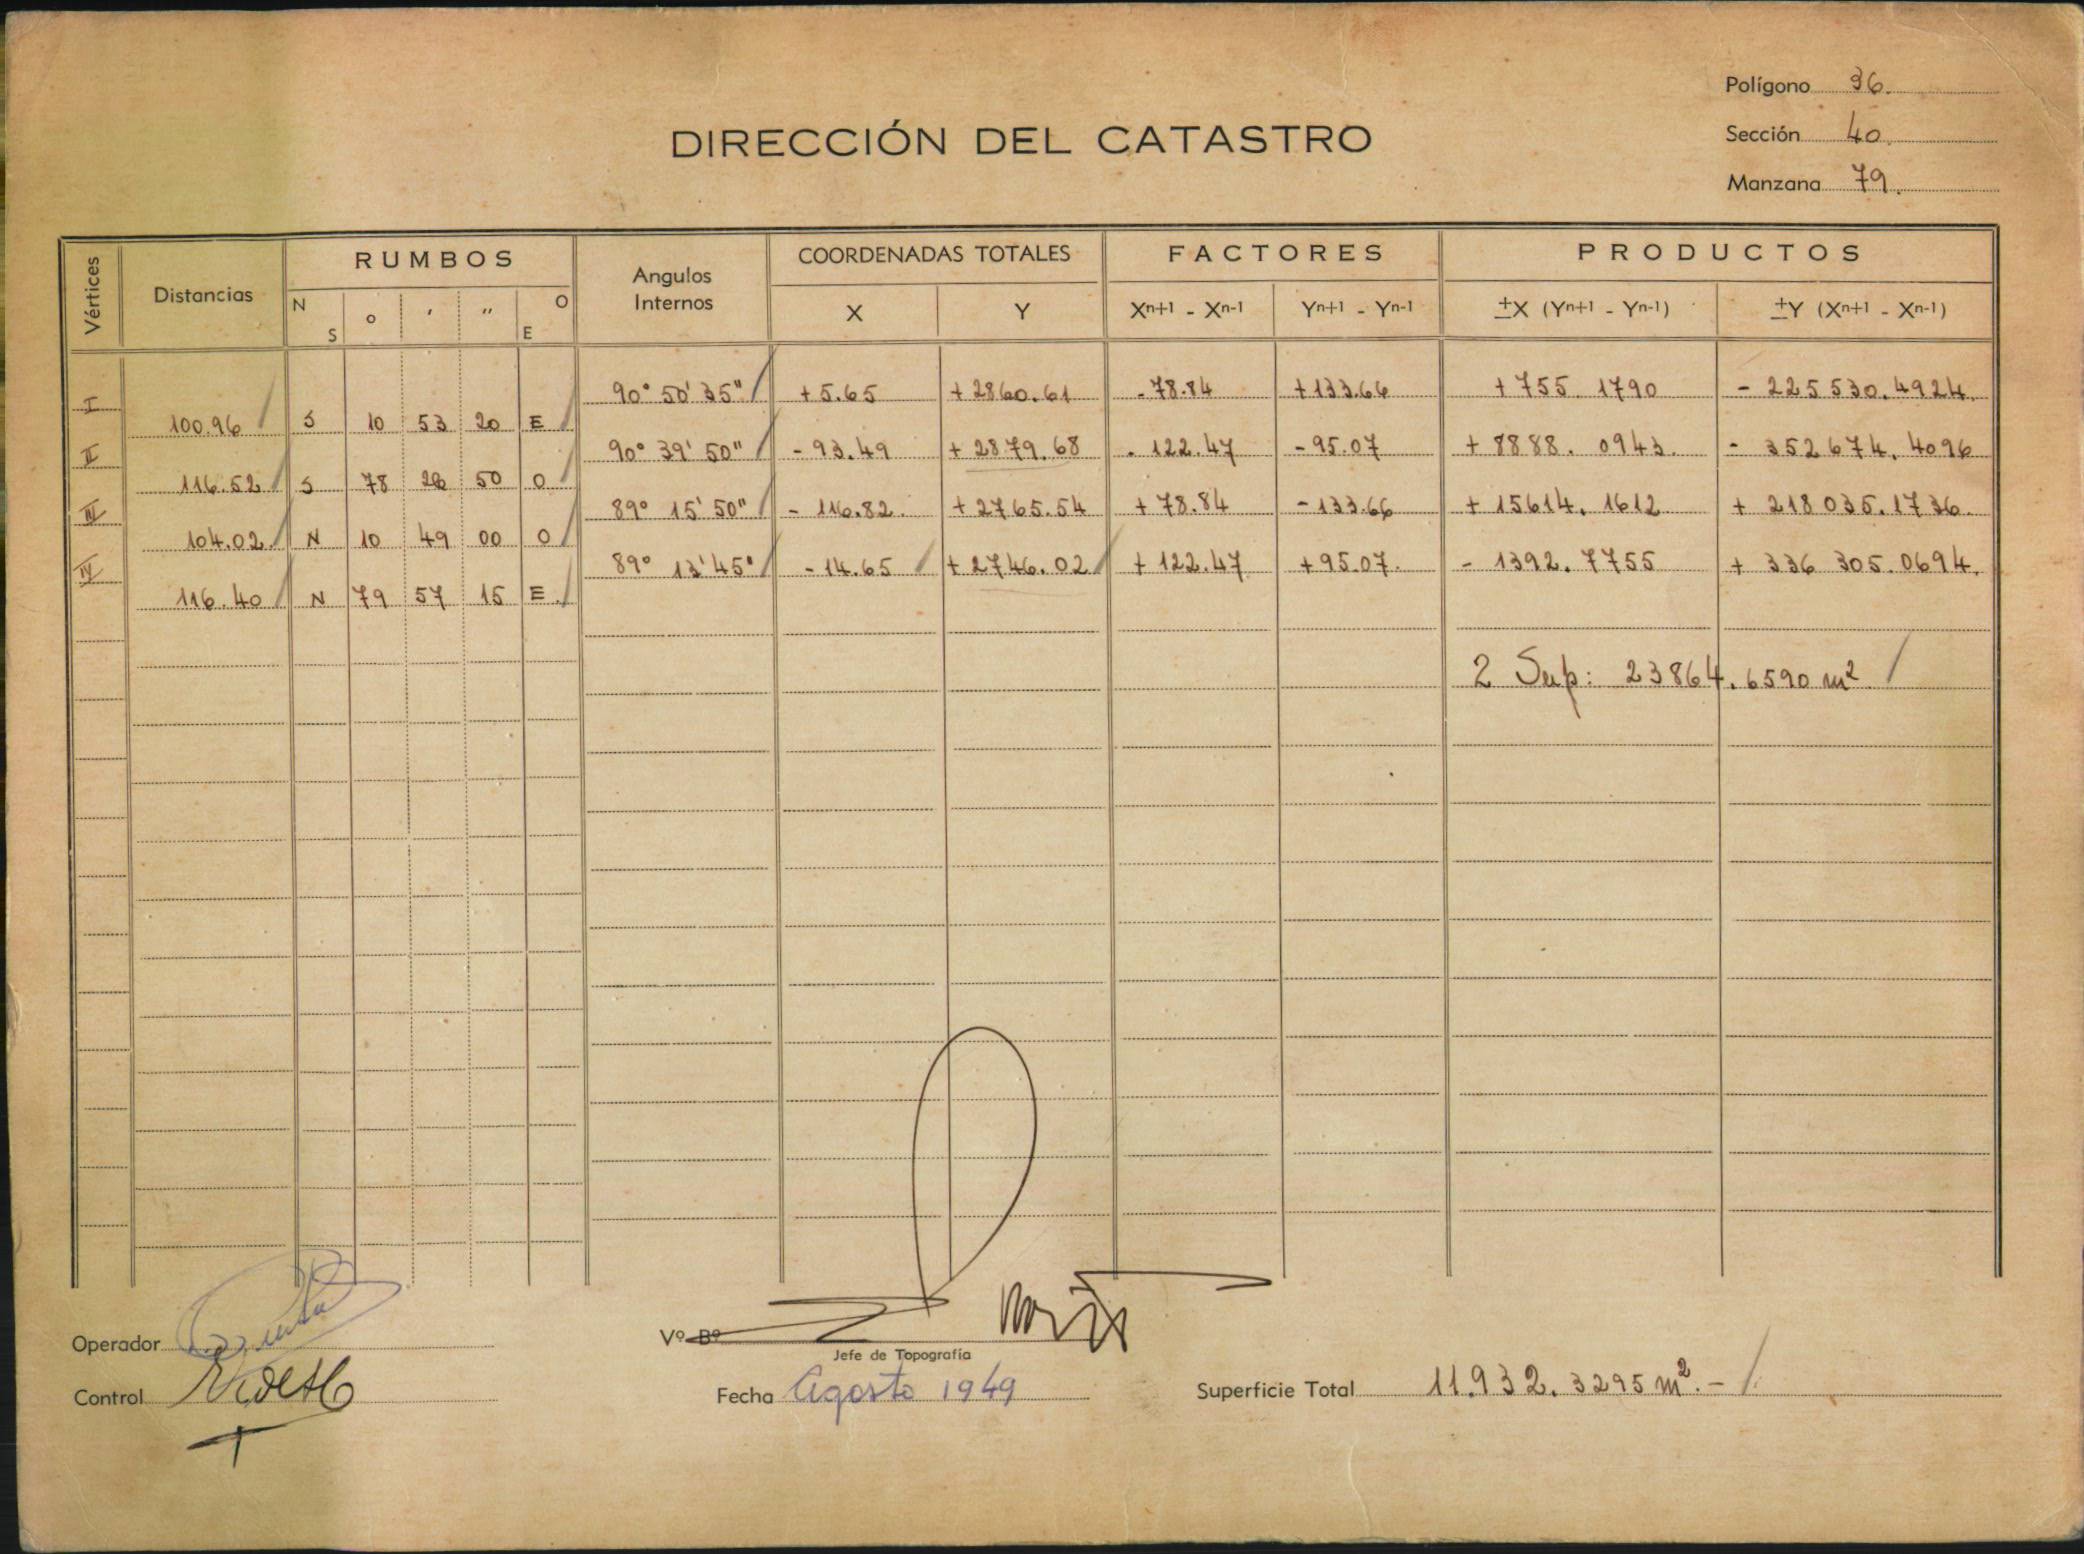 Polígono 36.
DIRECCIÓN DEL CATASTRO
Sección 40.
Manzana 79.
Vértices Distancias RUMBOS Angulos Internos COORDENADAS TOTALES FACTORES PRODUCTOS
N S o ' " O E X Y Xn+1 - Xn-1 Yn+1 - Yn-1 ±X (Yn+1 - Yn-1) ±Y (Xn+1 - Xn-1)
I 90° 50' 35" +5.65 +2860.61 -78.84 +133.66 +755.1790 -225530.4924.
100.96 S 10 53 20 E
II 90° 39' 50" -93.49 +2879.68 -122.47 -95.07 +8888.0943. -352674.4096
116.52 S 78 50 O
III 89° 15' 50" -116.82. +2765.54 +78.84 -133.66 +15614.1612 +218035.1736.
104.02. N 10 49 00 O
IV 89° 13' 45" -14.65 +2746.02 +122.47 +95.07. -1392.7755 +336305.0694.
116.40 N 79 57 15 E.
2 Sup: 23864.6590 m²
Operador
Vº Bº
Jefe de Topografía
Control
Fecha Agosto 1949
Superficie Total 11.932.3295 m².-